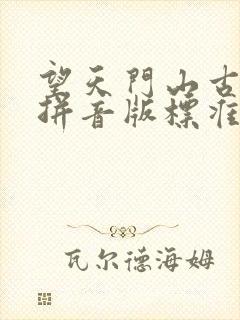 望天門山古
拼音版標准
瓦尔德海姆